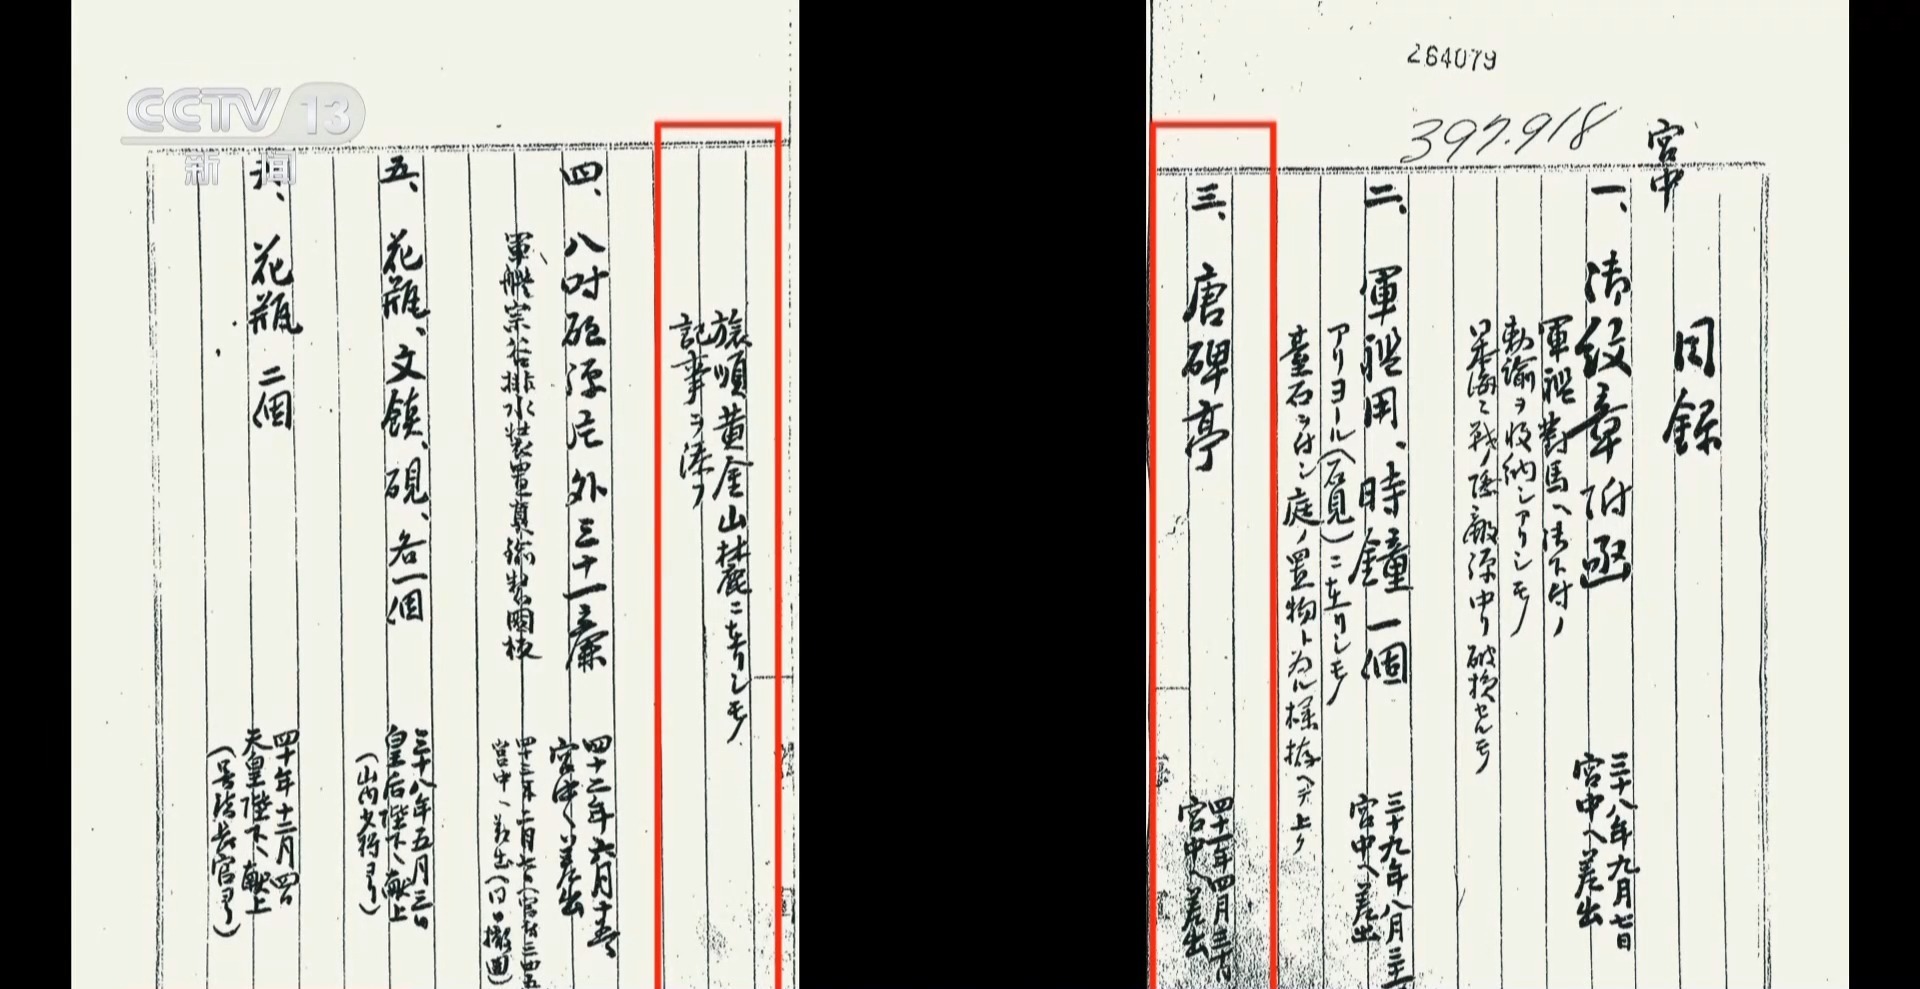 264079
397.918
宮中
目録
一、御紋章附函
軍艦對馬ヘ御下付ノ
勅諭ヲ収納シアリシモノ
日本海ニ戦ノ際敵弾中リ破損セルモノ
三十八年九月七日
宮中ヘ差出
二、軍艦用、時鐘一個
アリヨール(石見)ニ在リシモノ
臺石ヲ付シ庭ノ置物ト為ル様拵ヘテ上ク
三十九年八月三
宮中ヘ差出
三、唐碑亭
四十一年四月三十日
宮中ヘ差出
旅順黄金山麓ニ在リシモノ
記事ヲ添フ
四、八吋砲弾片外三十一廉
四十二年六月十五
宮中ヘ差出
軍艦宗谷排水装置真鍮製圖板
四十三年二月
宮中ヘ差出
五、花瓶、文鎮、硯、各一個
三十八年五月三日
皇后陛下ヘ献上
(山内少将ヨリ)
花瓶 二個
四十年十二月四日
天皇陛下ヘ献上
長官ヨリ)
CCTV 13
新闻